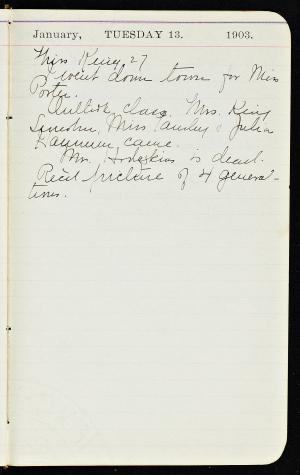 January, TUESDAY 13. 1903.
Miss King 27
went down town for Miss
Porter.
class. Mrs. King
Miss & Julia
came.
Mr. Hodgkins is dead.
Rec'd picture of 4 genera-
tions.